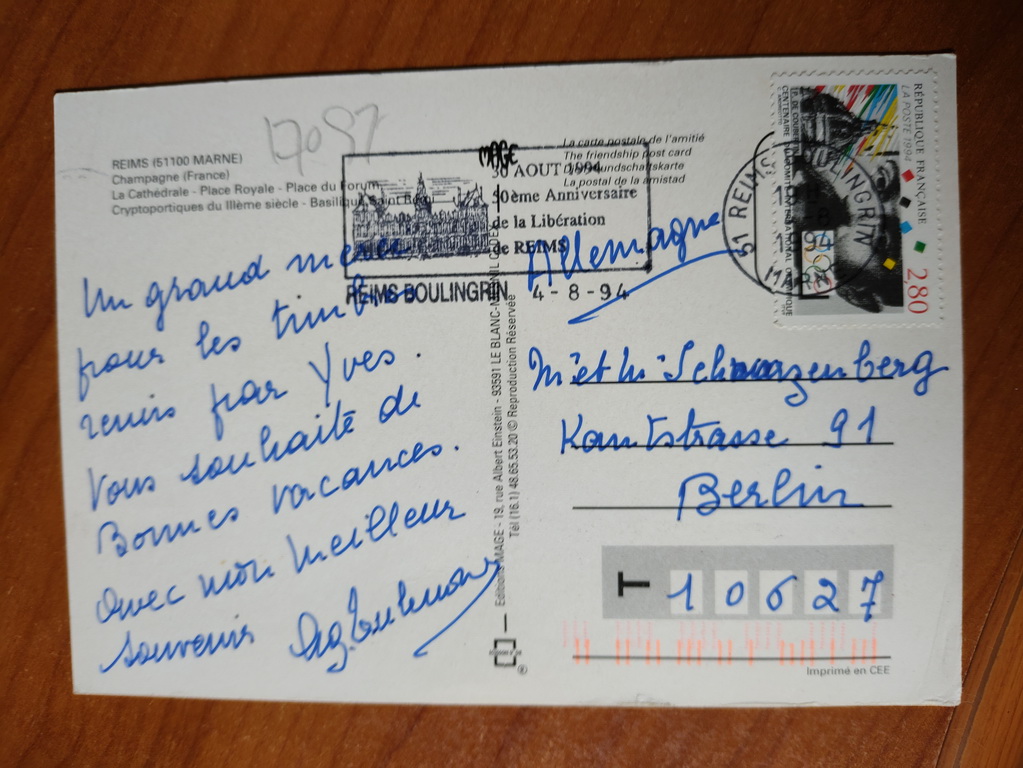 REIMS (51100 MARNE)
Champagne (France)
La Cathédrale - Place Royale - Place du Forum
Cryptoportiques du IIIème siècle - Basilique Saint Remi
Un grand merci
pour les timbres
remis par Yves.
Vous souhaite de
Bonnes vacances.
Avec mon meilleur
souvenir
MAGE
30 AOUT 1994
50ème Anniversaire
de la Libération
de REIMS
REIMS BOULINGRIN 4-8-94
Editions MAGE - 19, rue Albert Einstein - 93591 LE BLANC-MESNIL CEDEX
Tél (16.1) 48.65.53.20 © Reproduction Réservée
La carte postale de l'amitié
The friendship post card
Die Freundschaftskarte
La postal de la amistad
RÉPUBLIQUE FRANÇAISE
LA POSTE 1994
2,80
51 REIMS BOULINGRIN
94
MARNE
Allemagne
Schwarzenberg
Kantstrasse 91
Berlin
T 10627
Imprimé en CEE